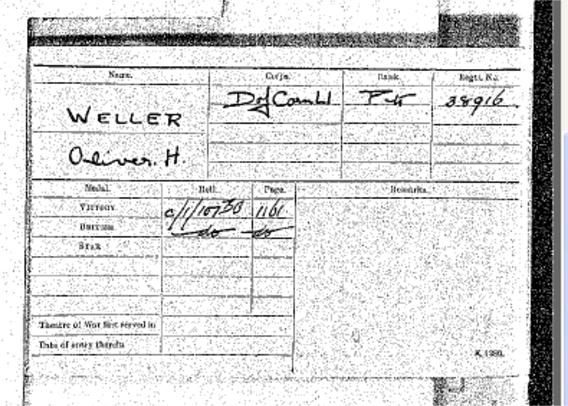 Name. Corps. Rank. Regtl. No.
WELLER D of Corn LI Pte 38916.
Oliver. H.
Medal. Roll. Page. Remarks.
VICTORY C/1/107 B6 1161
BRITISH do do
STAR
Theatre of War first served in
Date of entry therein
K. 1380.